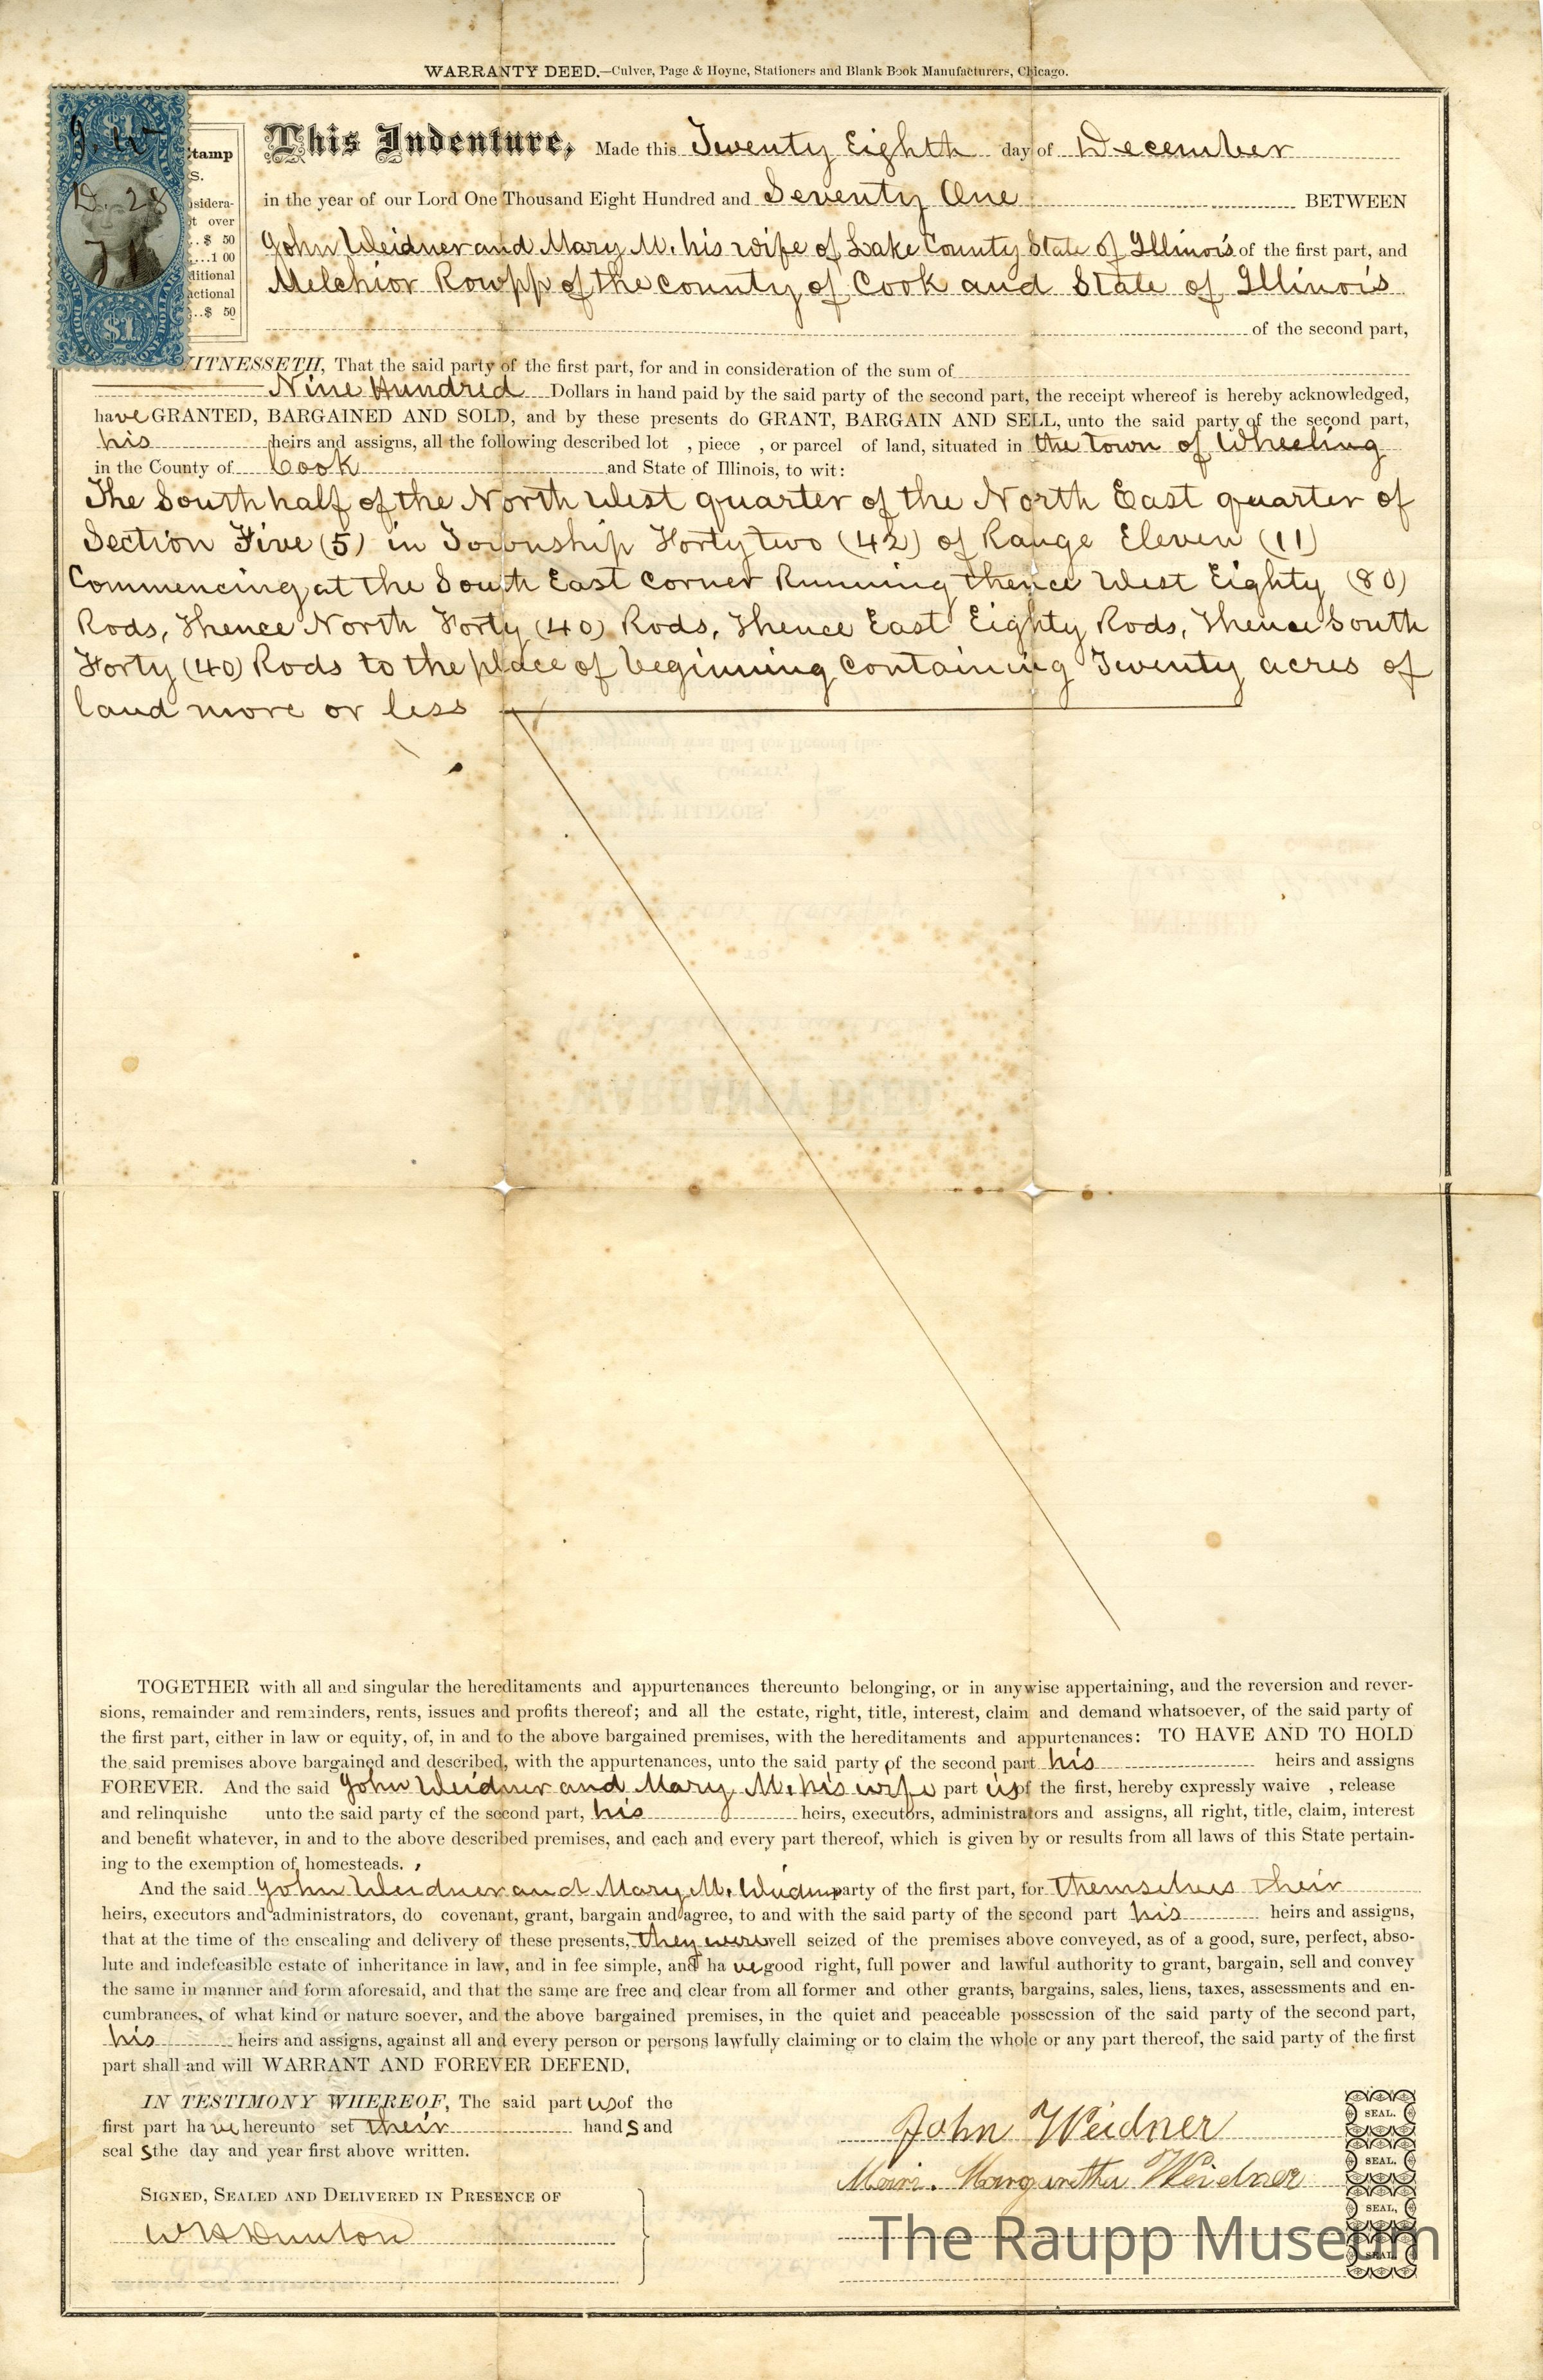 WARRANTY DEED.—Culver, Page & Hoyne, Stationers and Blank Book Manufacturers, Chicago.
$1
J. W
D. 28
71
$1
Stamp
S.
nsidera-
ot over
..$ 50
...1 00
ditional
actional
...$ 50
This Indenture, Made this Twenty Eighth day of December
in the year of our Lord One Thousand Eight Hundred and Seventy One BETWEEN
John Weidner and Mary M. his wife of Lake County State of Illinois of the first part, and
Melchior Rowpp of the county of Cook and State of Illinois
of the second part,
WITNESSETH, That the said party of the first part, for and in consideration of the sum of
Nine Hundred Dollars in hand paid by the said party of the second part, the receipt whereof is hereby acknowledged,
have GRANTED, BARGAINED AND SOLD, and by these presents do GRANT, BARGAIN AND SELL, unto the said party of the second part,
his heirs and assigns, all the following described lot , piece , or parcel of land, situated in the town of Wheeling
in the County of Cook and State of Illinois, to wit:
The South half of the North West quarter of the North East quarter of
Section Five (5) in Township Forty two (42) of Range Eleven (11)
Commencing at the South East corner Running thence West Eighty (80)
Rods, Thence North Forty (40) Rods, Thence East Eighty Rods, Thence South
Forty (40) Rods to the place of beginning containing Twenty acres of
land more or less
TOGETHER with all and singular the hereditaments and appurtenances thereunto belonging, or in anywise appertaining, and the reversion and rever-
sions, remainder and remainders, rents, issues and profits thereof; and all the estate, right, title, interest, claim and demand whatsoever, of the said party of
the first part, either in law or equity, of, in and to the above bargained premises, with the hereditaments and appurtenances: TO HAVE AND TO HOLD
the said premises above bargained and described, with the appurtenances, unto the said party of the second part his heirs and assigns
FOREVER. And the said John Weidner and Mary M. his wife part ies of the first, hereby expressly waive , release
and relinquishe unto the said party of the second part, his heirs, executors, administrators and assigns, all right, title, claim, interest
and benefit whatever, in and to the above described premises, and each and every part thereof, which is given by or results from all laws of this State pertain-
ing to the exemption of homesteads.
And the said John Weidner and Mary M. Weidner party of the first part, for themselves their
heirs, executors and administrators, do covenant, grant, bargain and agree, to and with the said party of the second part his heirs and assigns,
that at the time of the ensealing and delivery of these presents, they were well seized of the premises above conveyed, as of a good, sure, perfect, abso-
lute and indefeasible estate of inheritance in law, and in fee simple, and ha ve good right, full power and lawful authority to grant, bargain, sell and convey
the same in manner and form aforesaid, and that the same are free and clear from all former and other grants, bargains, sales, liens, taxes, assessments and en-
cumbrances, of what kind or nature soever, and the above bargained premises, in the quiet and peaceable possession of the said party of the second part,
his heirs and assigns, against all and every person or persons lawfully claiming or to claim the whole or any part thereof, the said party of the first
part shall and will WARRANT AND FOREVER DEFEND.
IN TESTIMONY WHEREOF, The said part ies of the
first part ha ve hereunto set their hand s and
seal s the day and year first above written.
SIGNED, SEALED AND DELIVERED IN PRESENCE OF
W H Dunton
John Weidner SEAL.
Margaretha Weidner SEAL.
SEAL.
SEAL.
The Raupp Museum